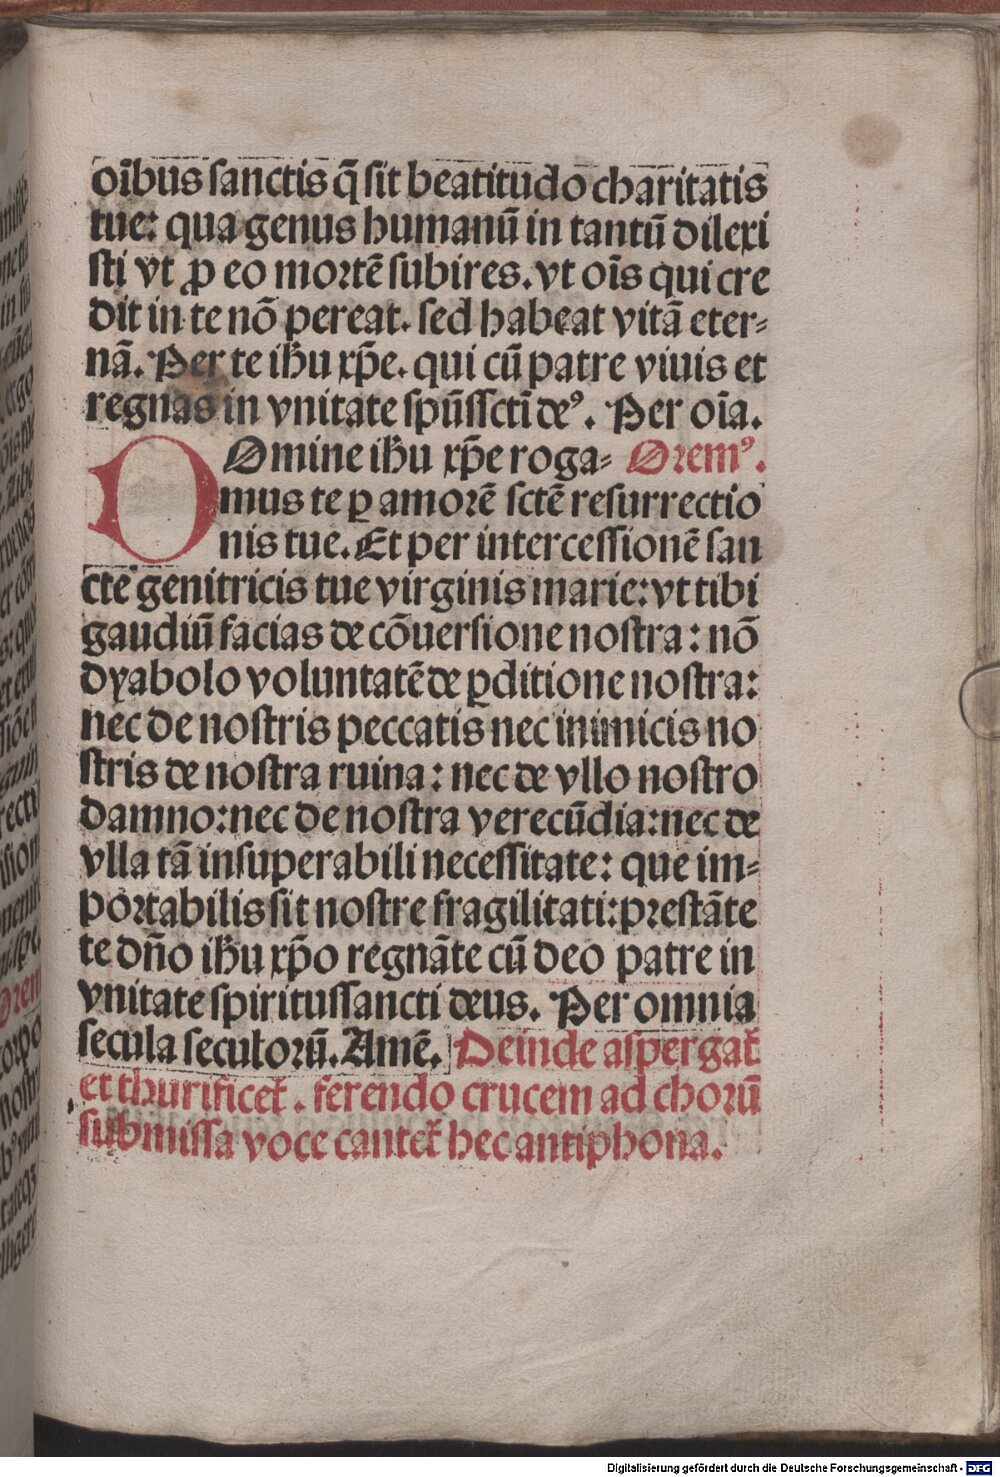 oı̄bus sanctis q̄ sit beatitudo charitatis
tue: qua genus humanū in tantū dilexi
sti vt ꝓ eo mortē subires. vt oı̄s qui cre
dit in te nō pereat. sed habeat vitā eter⸗
nā. Per te ihu xp̄e. qui cū patre viuis et
regnas in vnitate spūssctı̄ deꝰ. Per oı̄a.
DOmine ihu xp̄e roga⸗ Oremꝰ.
mus te ꝑ amorē sctē resurrectio
nis tue. Et per intercessionē san
cte genitricis tue virginis marie: vt tibi
gaudiū facias de cōuersione nostra: nō
dyabolo voluntatē de ꝑditione nostra:
nec de nostris peccatis nec inimicis no
stris de nostra ruina: nec de vllo nostro
damno: nec de nostra verecūdia: nec de
vlla tā insuperabili necessitate: que im⸗
portabilis sit nostre fragilitati: prestāte
te dn̄o ihu xp̄o regnāte cū deo patre in
vnitate spiritussancti deus. Per omnia
secula seculorū. Amē. Deinde aspergat̄
et thurificet̄. ferendo crucem ad chorū
submissa voce cantet̄ hec antiphona.
Digitalisierung gefördert durch die Deutsche Forschungsgemeinschaft - DFG